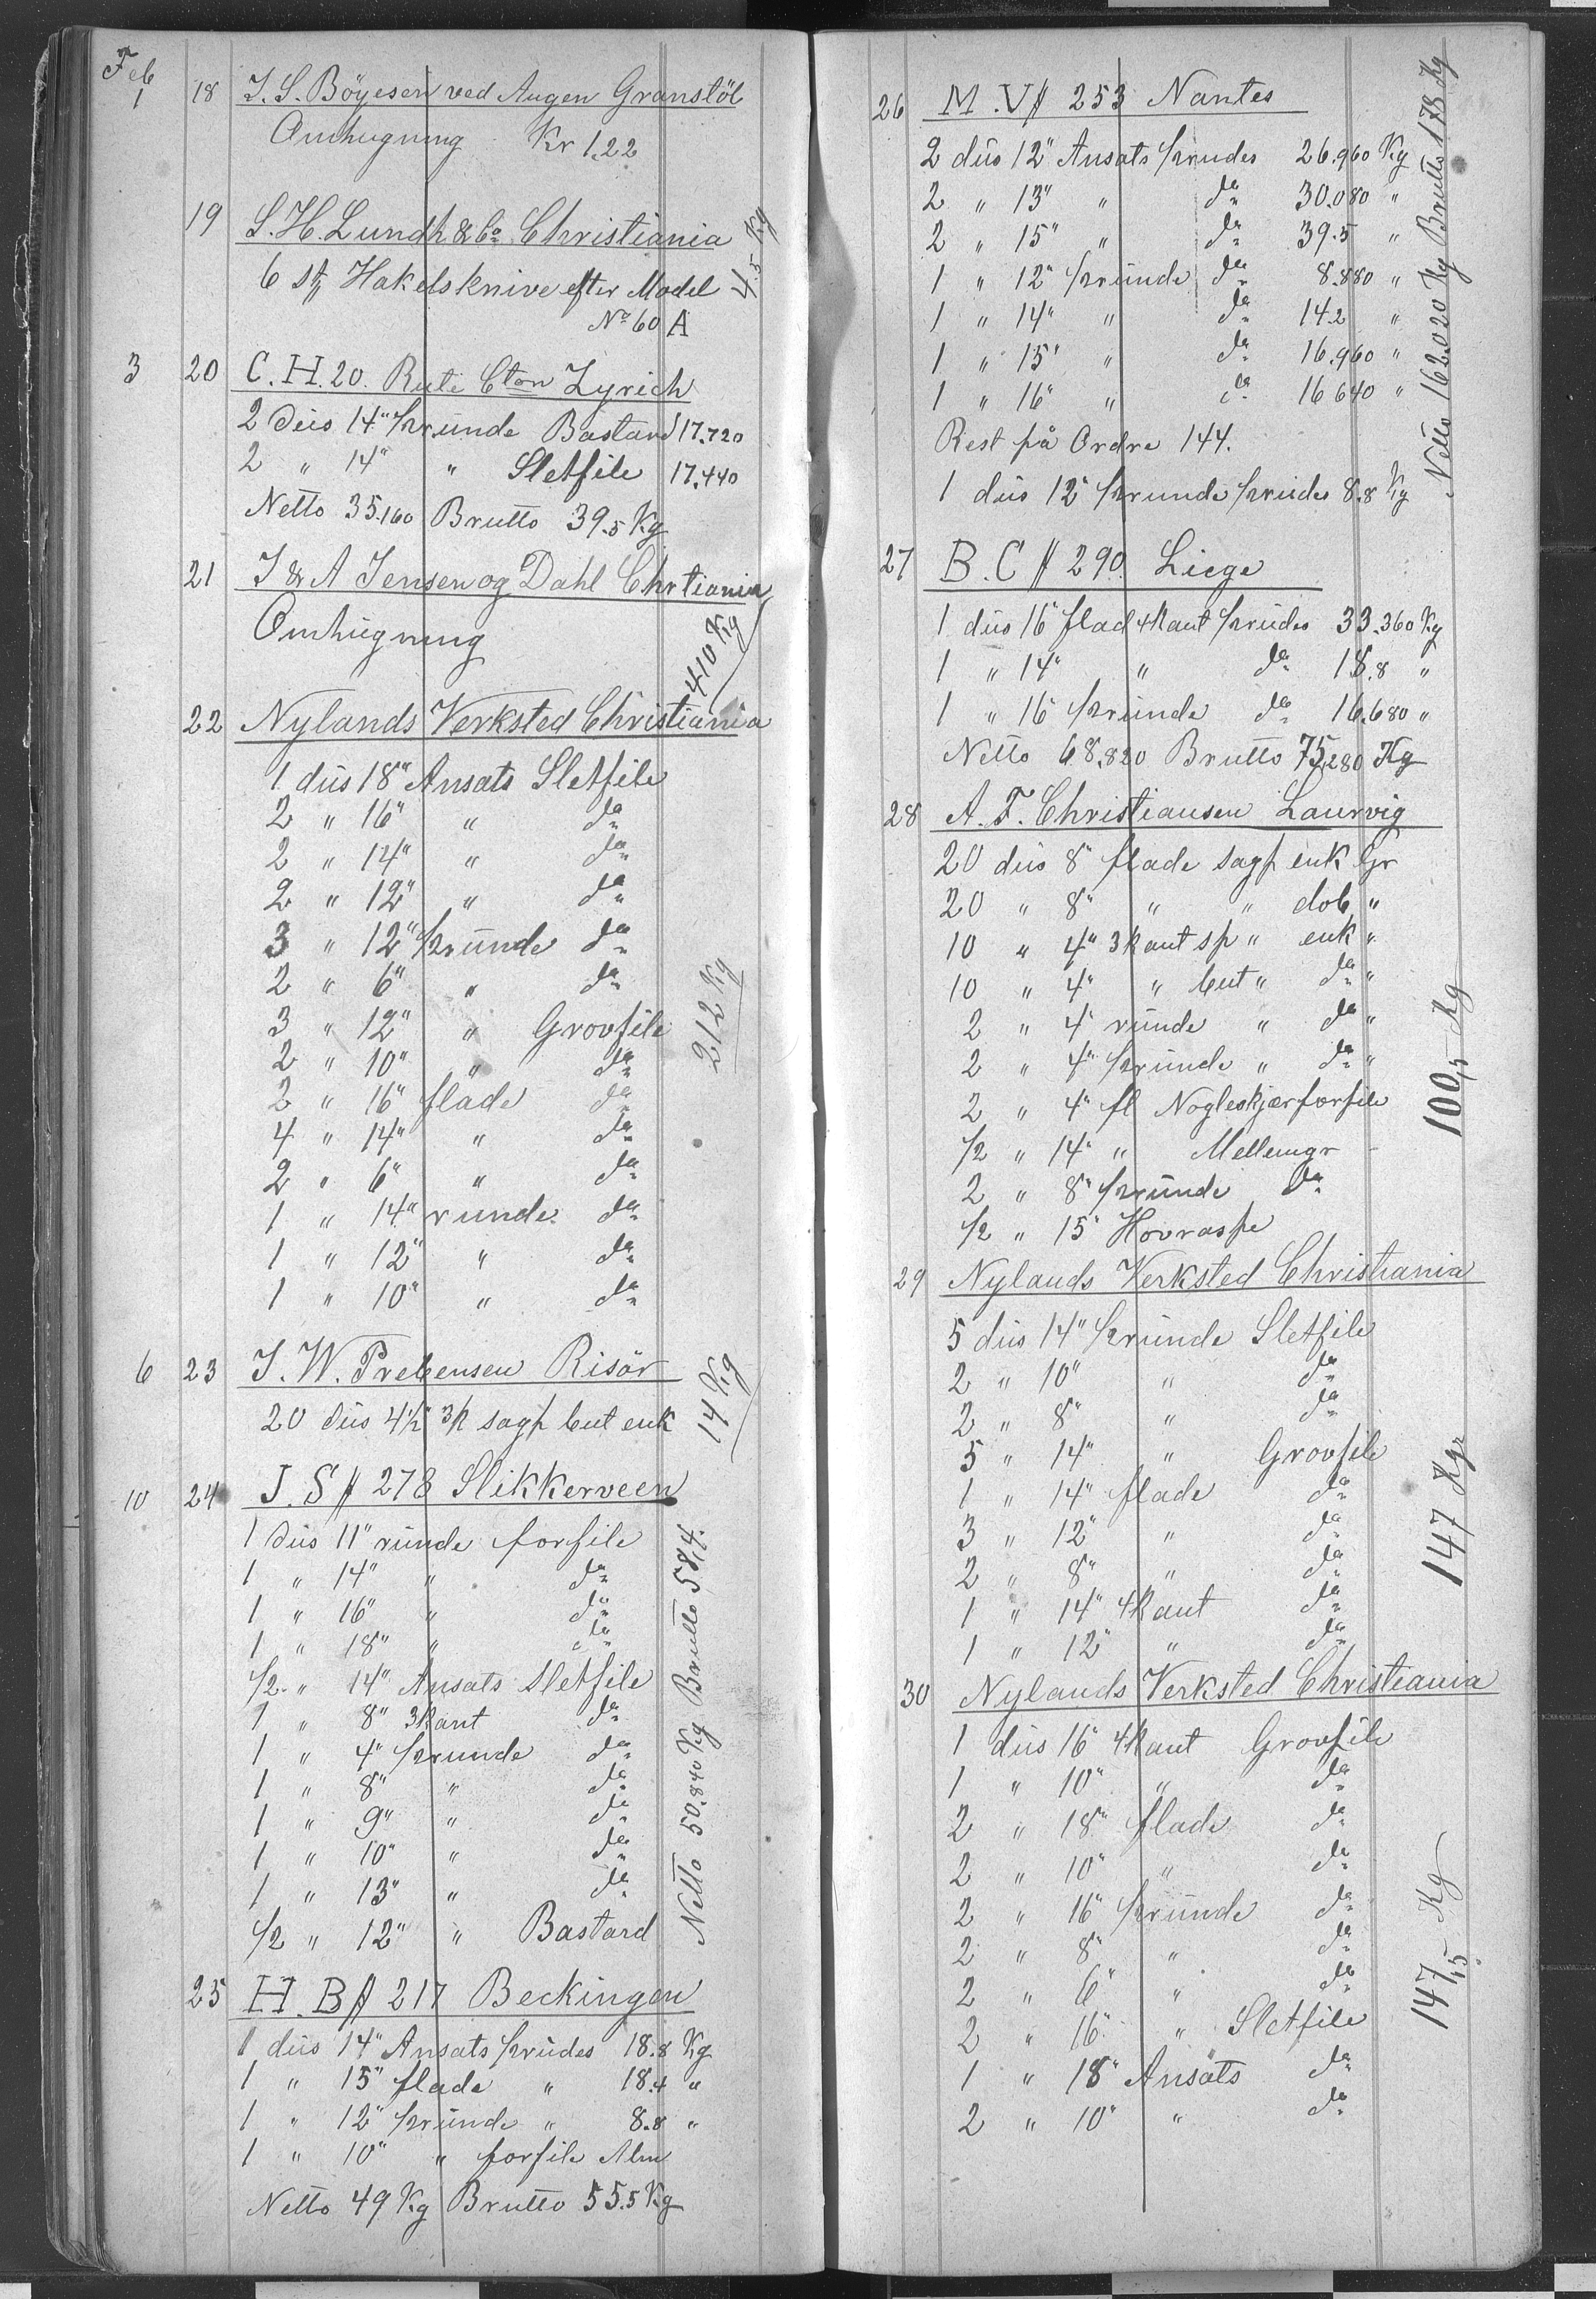 Feb
1 18 J. S. Böyesen ved Augen Granstöl
Omhugning Kr 1.22
19 S. H. Lundh & Co Christiania
6 st Hakelsknive efter Model 4.5 Kg
No 60 A
3 20 C. H. 20. Ruti Cton Zyrich
2 düs 14" ½ründe Bastard 17.720
2 " 14" " Sletfile 17.440
Netto 35.160 Brutto 39.5 Kg
21 J & A Jensen og Dahl Chrtiania
Omhügning 410 Kg
22 Nylands Verksted Christiania
1 düs 18" Ansats Sletfile
2 " 16" " do
2 " 14" " do
2 " 12" " do
3 " 12" ½ründe do
2 " 6" " do
3 " 12" " Grovfile
2 " 10" " do
2 " 16" flade do
4 " 14" " do
2 " 6" " do
1 " 14" runde do
1 " 12" " do
1 " 10" " do
212 Kg
6 23 J. W. Prebensen Risör
20 düs 4½" 3k sagf but enk 14 Kg
10 24 J. S # 278 Slikkerveen
1 düs 11" ründe forfile
1 " 14" " do
1 " 16" " do
1 " 18" " do
½ " 14" Ansats Sletfile
1 " 8" 3kant do
1 " 4" ½runde do
1 " 8" " do
1 " 9" " do
1 " 10" " do
1 " 13" " do
½ " 12" " Bastard
Netto 50.840 Kg Brutto 58,4.
25 H. B # 217 Beckingen
1 düs 14" Ansats ½rüdes 18.8 Kg
1 " 15" flade " 18.4 "
1 " 12" ½ründe " 8.8 "
1 " 10" " forfile Alm
Netto 49 Kg Brutto 55.5 Kg
26 M. V # 253 Nantes
2 düs 12" Ansats ½rudes 26.960 Kg
2 " 13" " do 30.080 "
2 " 15" " do 39.5 "
1 " 12" ½ründe do 8.880 "
1 " 14" " do 14.2 "
1 " 15" " do 16.960 "
1 " 16" " do 16640 "
Rest på Ordre 144.
1 düs 12" ½runde ½rüdes 8.8 Kg
Netto 162.020 Kg Brutto 178 Kg
27 B. C # 290. Liege
1 düs 16" flad 4kant ½rüdes 33.360 Kg
1 " 14" " do 18.8 "
1 " 16" ½ründe do 16.680 "
Netto 68.820 Brutto 75,280 Kg
28 A. F. Christiansen Laurvig
20 düs 8" flade sagf enk Gr
20 " 8" " " dob "
10 " 4" 3kant sp " enk "
10 " 4" " but " do "
2 " 4" ründe " do "
2 " 4" ½runde " do "
2 " 4" fl Nogleskjærforfile
½ " 14" " Mellemgr
2 " 8" ½ründe do
½ " 15" Hovraspe
100,5 Kg
29 Nylands Verksted Christiania
5 düs 14" ½runde Sletfile
2 " 10" " do
2 " 8" " do
5 " 14" " Grovfile
1 " 14" flade do
3 " 12" " do
2 " 8" " do
1 " 14" 4kant do
1 " 12" " do
147 Kgr
30 Nylands Verksted Christiania
1 düs 16" 4kant Grovfile
1 " 10" " do
2 " 18" flade do
2 " 10" " do
2 " 16" ½runde do
2 " 8" " do
2 " 6" " do
2 " 16" " Sletfile
1 " 18" Ansats do
2 " 10" " do
147,5 Kg